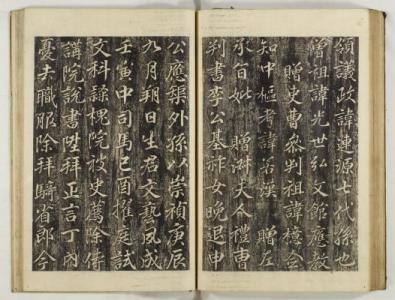 領議政諱連源七代孫也
曾祖諱光世弘文館應敎
贈吏曹參判祖諱檍僉
知中樞考諱若漢 贈左
承旨妣 贈淑夫人禮曹
判書李公基祚女晚退申
公應榘外孫以崇禎庚辰
九月朔日生君文藝夙成
壬寅中司馬己酉擢庭試
文科隷槐院被史薦除侍
講院說書陞拜正言丁內
憂去職服除拜騎省郎今